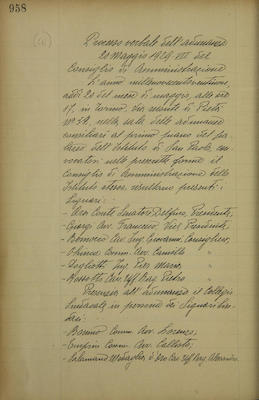 958
Processo verbale dell'adunanza
20 Maggio 1929 VII del
Consiglio di Amministrazione
L'anno millenovecentoventinove,
addì 20 del mese di maggio, alle ore
17, in Torino, via
nella sala delle adunanze
consiliari al primo piano del pa
lazzo dell'Istituto di San Paolo, con
vocatosi nelle prescritte forme il
Consiglio di Amministrazione dello
Istituto stesso, risultano presenti i
Signori:
- Conte Senatore Delfino, Presidente;
- Avv. Francesco Vice Presidente;
- Ing. Giovanni, Consigliere;
- Comm. Avv. Camillo "
- Ing. Pier Mario, "
- Rag. Pietro "
all'adunanza il Collegio
Sindacale in persona dei Signori Sin
daci:
- Comm. Avv. Lorenzo;
- Comm. Avv. Calisto;
- Rag. Alessandro